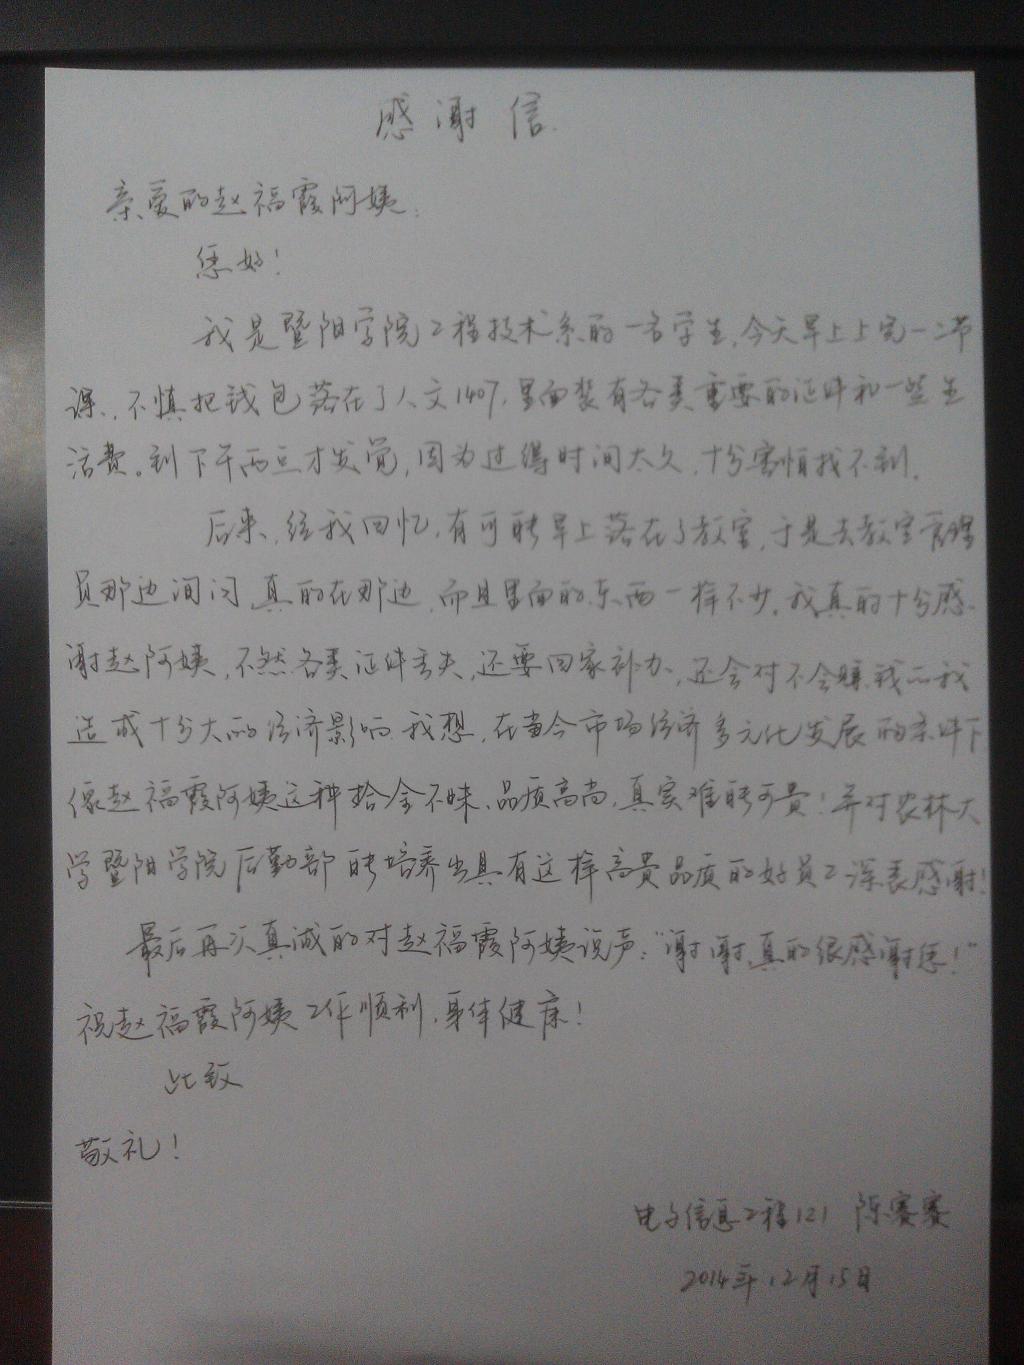 感谢信
亲爱的赵福霞阿姨:
您好!
我是暨阳学院工程技术系的一名学生,今天早上上完一二节
课,不慎把钱包落在了人文1407,里面装有各类重要的证件和一些生
活费。到下午两点才发觉,因为过得时间太久,十分害怕找不到。
后来,经我回忆,有可能早上落在了教室,于是去教室管理
员那边询问,真的在那边,而且里面的东西一样不少,我真的十分感
谢赵阿姨,不然各类证件丢失,还要回家补办,还会对不会赚钱的我
造成十分大的经济影响。我想,在当今市场经济多元化发展的条件下
像赵福霞阿姨这种拾金不昧、品质高尚,真实难能可贵!并对农林大
学暨阳学院后勤部能培养出具有这样高贵品质的好员工深表感谢!
最后再次真诚的对赵福霞阿姨说声:“谢谢,真的很感谢您!”
祝赵福霞阿姨工作顺利,身体健康!
此致
敬礼!
电子信息工程121 陈赛赛
2014年12月15日